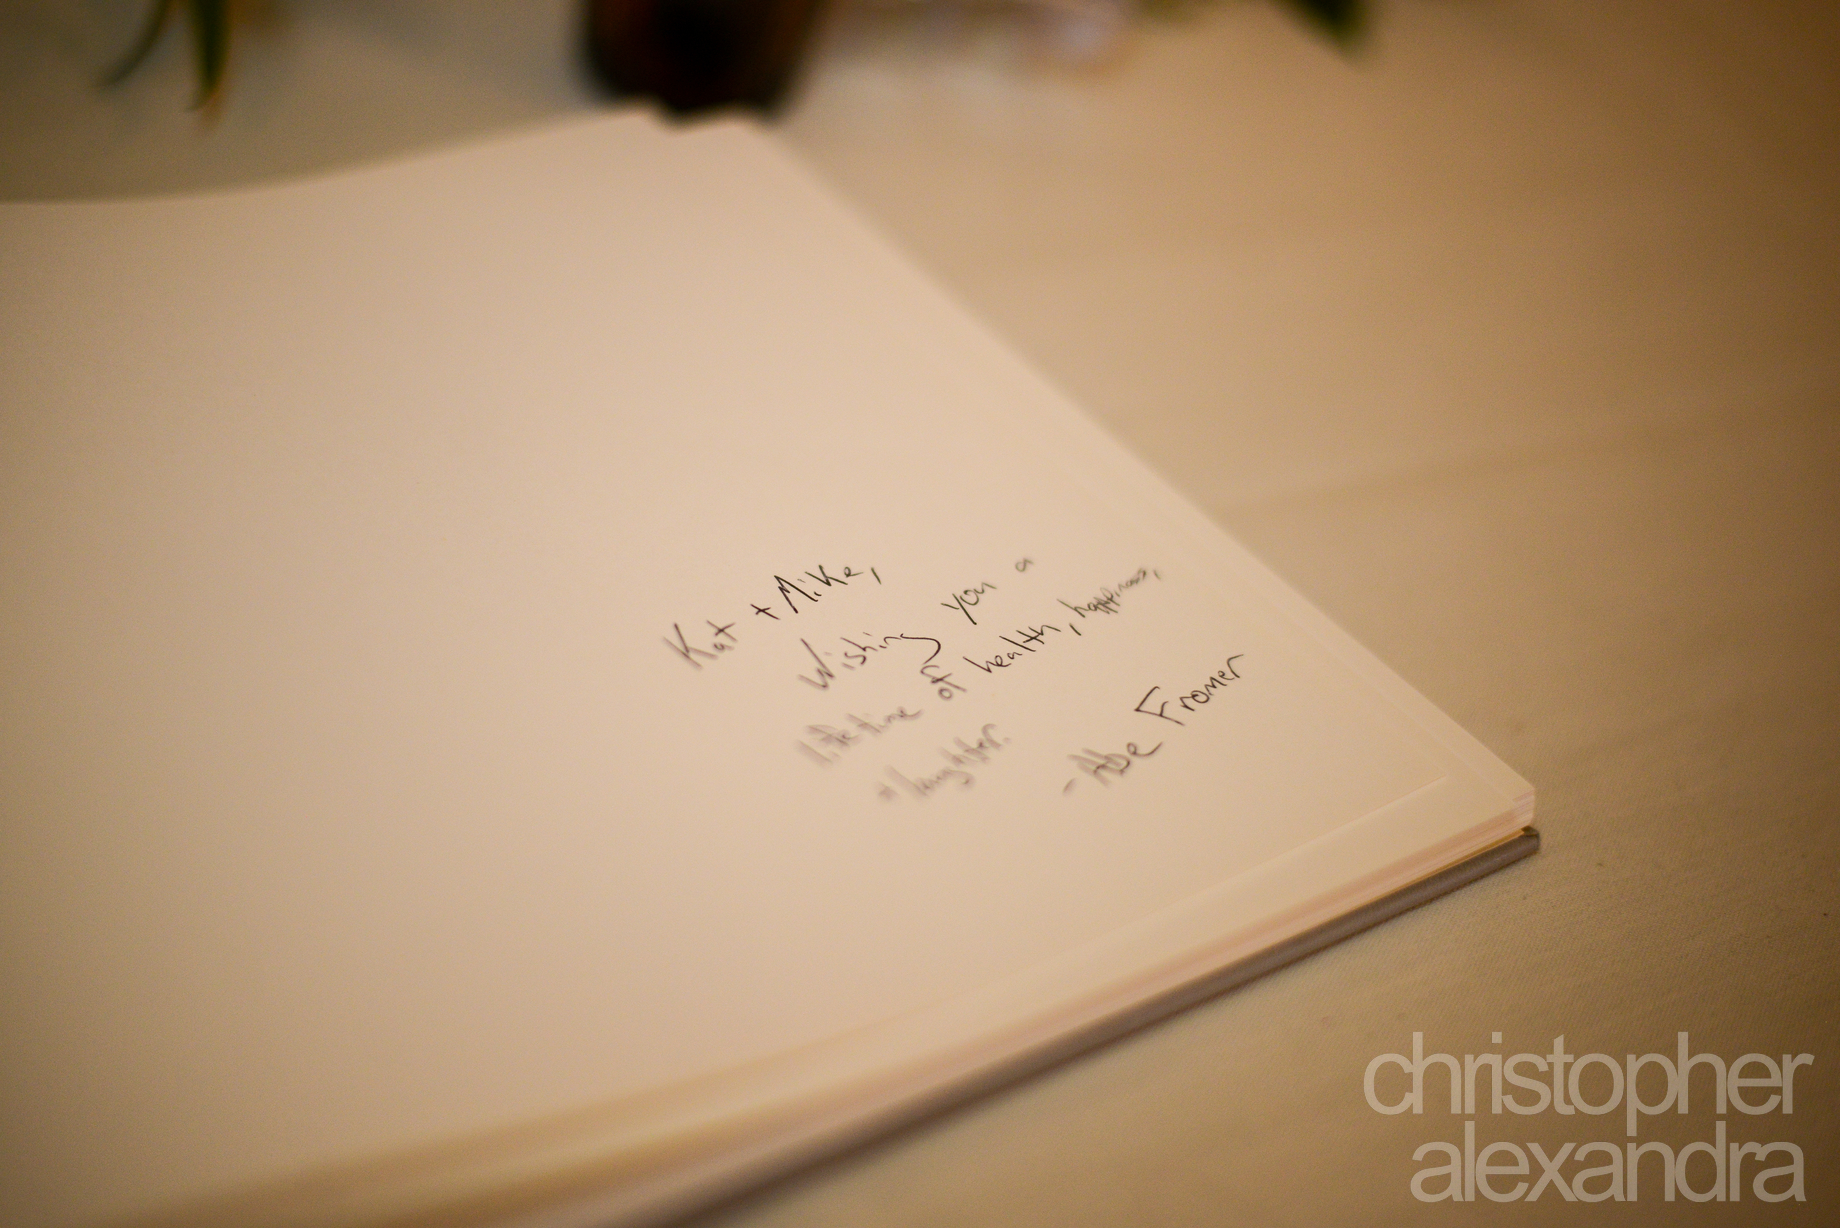 Kat + Mike,
Wishing you a
lifetime of health, happiness,
+ laughter.
- Abe Fromer
christopher
alexandra